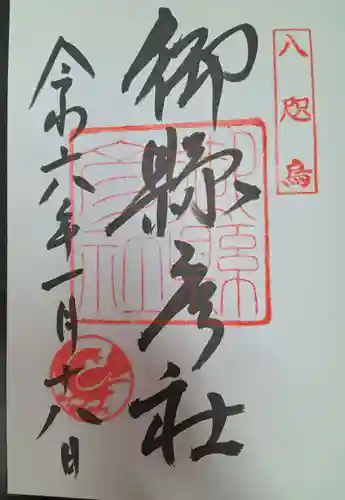 八咫烏
御縣彦社
令和六年一月十八日